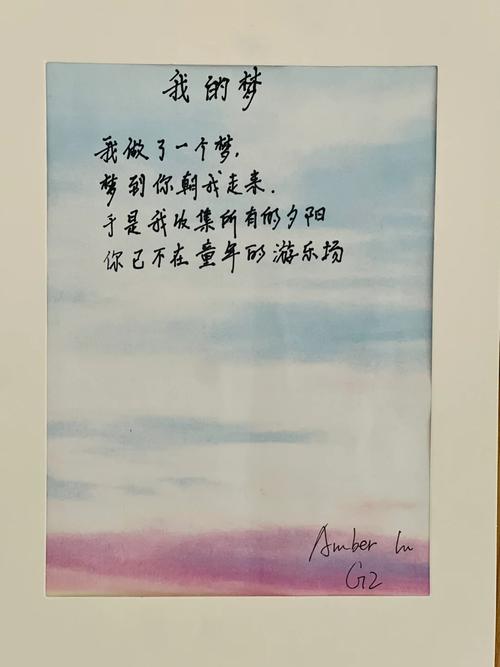 我的梦
我做了一个梦,
梦到你朝我走来.
于是我收集所有的夕阳
你已不在童年的游乐场
Amber Lu
G2